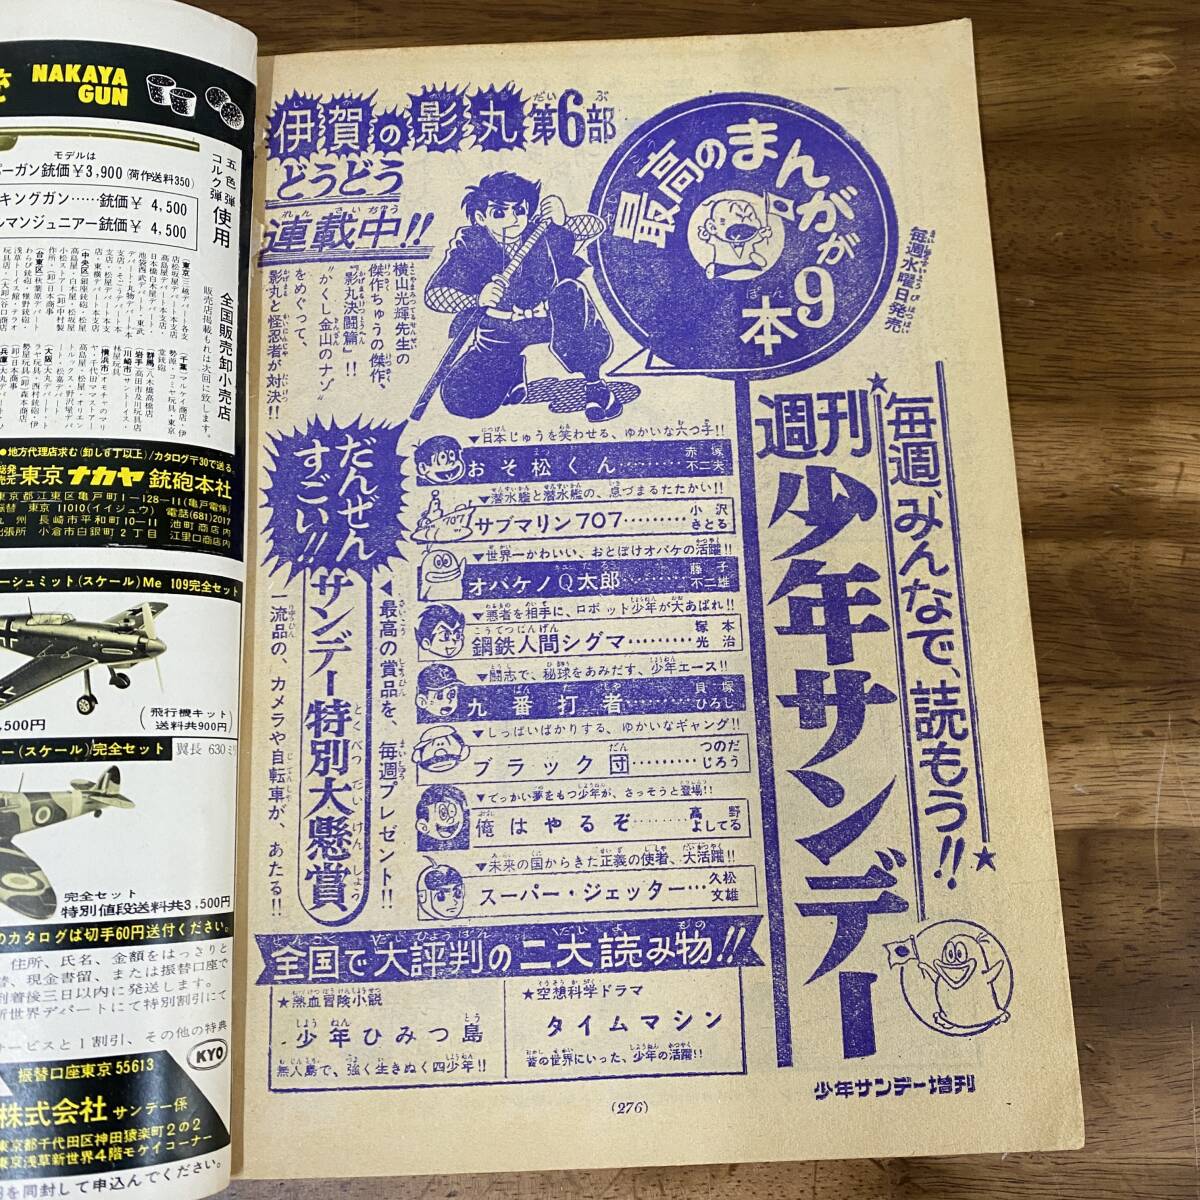 伊賀の影丸 第6部
どうどう
連載中!!
最高のまんがが9本
毎週水曜日発売
横山光輝先生の
傑作ちゅうの傑作、
『影丸決闘篇』!!
"かくし金山のナゾ"
をめぐって、
影丸と怪忍者が対決!!
★毎週、みんなで、読もう!!★
週刊少年サンデー
▼日本じゅうを笑わせる、ゆかいな六つ子!!
おそ松くん………赤塚不二夫
▼潜水艦と潜水艦の、息づまるたたかい!!
サブマリン707………小沢さとる
▼世界一かわいい、おとぼけオバケの活躍!!
オバケノQ太郎………藤子不二雄
▼悪者を相手に、ロボット少年が大あばれ!!
鋼鉄人間シグマ………塚本光治
▼闘志で、秘球をあみだす、少年エース!!
九番打者………貝塚ひろし
▼しっぱいばかりする、ゆかいなギャング!!
ブラック団………つのだじろう
▼でっかい夢をもつ少年が、さっそうと登場!!
俺はやるぞ………高野よしてる
▼未来の国からきた正義の使者、大活躍!!
スーパー・ジェッター…久松文雄
だんぜん
すごい!!
サンデー特別大懸賞
◀最高の賞品を、毎週プレゼント!!
一流品の、カメラや自転車が、あたる!!
全国で大評判の二大読み物!!
★熱血冒険小説
少年ひみつ島
無人島で、強く生きぬく四少年!!
★空想科学ドラマ
タイムマシン
昔の世界にいった、少年の活躍!!
少年サンデー増刊
(276)
NAKAYA
GUN
モデルは
ーガン銃価¥3,900(荷作送料350)
キングガン……銃価¥ 4,500
ルマンジュニアー銃価¥ 4,500
五色弾
コルク弾 使用
全国販売卸小売店
販売店掲載もれは次回に致します。
●地方代理店求む(卸し6丁以上)/カタログ〒30で送る。
東京ナカヤ銃砲本社
東京都江東区亀戸町1−128−11(亀戸電停)
振替 東京 11010(イイジュウ) 電話(681)2017
九 州 長崎市平和町10−11 池町商店内
出張所 小倉市白銀町2丁目 江里口商店内
ーシュミット(スケール)Me 109完全セット
,500円
(飛行機キット)
送料共900円
ー(スケール)完全セット 翼長 630ミリ
完全セット
特別値段送料共3,500円
のカタログは切手60円送付ください。
住所、氏名、金額をはっきりと
替、現金書留、または振替口座で
到着後三日以内に発送します。
新世界デパートにて特別割引にて
サービスと1割引、その他の特典
KYO
振替口座東京 55613
株式会社 サンデー係
東京都千代田区神田猿楽町2の2
東京浅草新世界4階モケイコーナー
を同封して申込んでください。